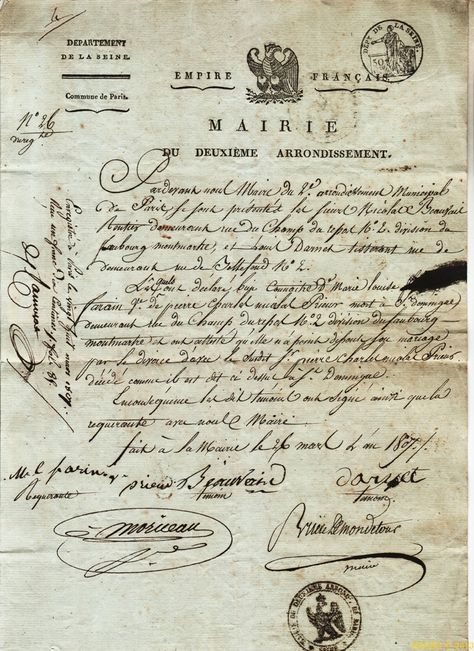 DEPARTEMENT
DE LA SEINE.
Commune de Paris.
DEPT DE LA SEINE
EMPIRE FRANÇAIS
N° 26
MAIRIE
DU DEUXIÈME ARRONDISSEMENT.
Pardevant nous Maire du 2e arrondissement Municipal
de Paris, se sont présentés les sieurs Nicolas Beauvais
Rentier demeurant rue du Champ du repos N° 2 division du
faubourg montmartre, et Louis
demeurant rue de N° 2.
Lesquels ont déclaré bien Connaître De Marie louise
faram Ve de pierre Charles nicolas Prieur mort à St Domingue
demeurant rue du Champ du repos N° 2 division du faubourg
montmartre et ont attesté qu'elle n'a point son mariage
par le divorce avec le susdit Sr pierre Charles nicolas Prieur
décédé comme il est dit ci dessus à St Domingue
En conséquence les dits témoins ont signé ainsi que la
requerante avec nous Maire
fait à la Mairie le 26 mars an 1807
requerante
Beauvais
temoin
temoin
Moriceau
Brière Mondétour
maire
MAIRIE DU DEUXIEME ARROND. DE PARIS